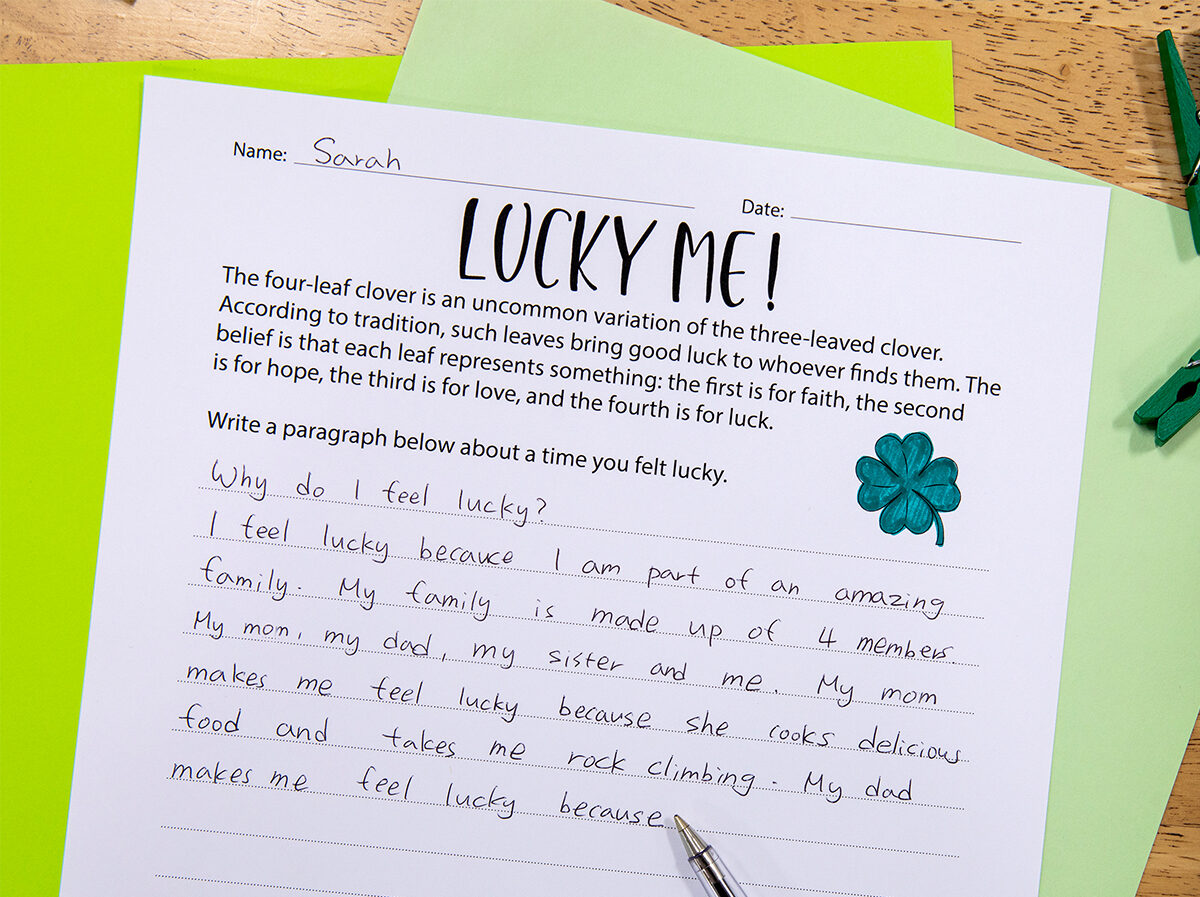 Name: Sarah
Date:
LUCKY ME!
The four-leaf clover is an uncommon variation of the three-leaved clover.
According to tradition, such leaves bring good luck to whoever finds them. The
belief is that each leaf represents something: the first is for faith, the second
is for hope, the third is for love, and the fourth is for luck.
Write a paragraph below about a time you felt lucky.
Why do I feel lucky?
I feel lucky becauce I am part of an amazing
family. My family is made up of 4 members.
My mom, my dad, my sister and me. My mom
makes me feel lucky because she cooks delicious
food and takes me rock climbing. My dad
makes me feel lucky because